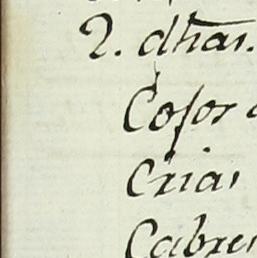 2. dhas.
Cosor
Crias
Cabre